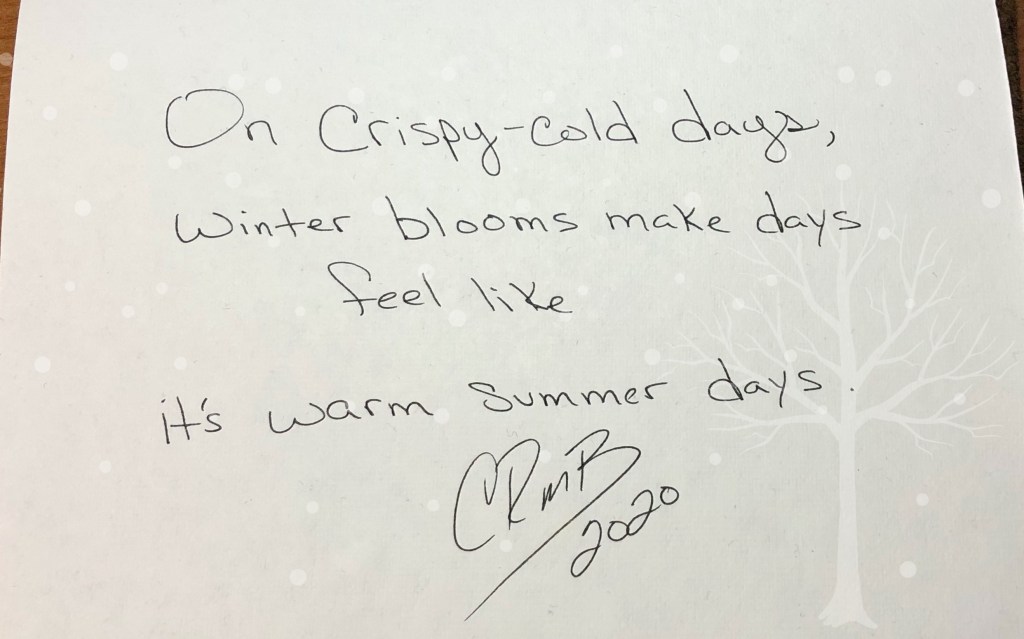 On Crispy-cold days,
Winter blooms make days
feel like
it's warm Summer days.
CRMB
2020